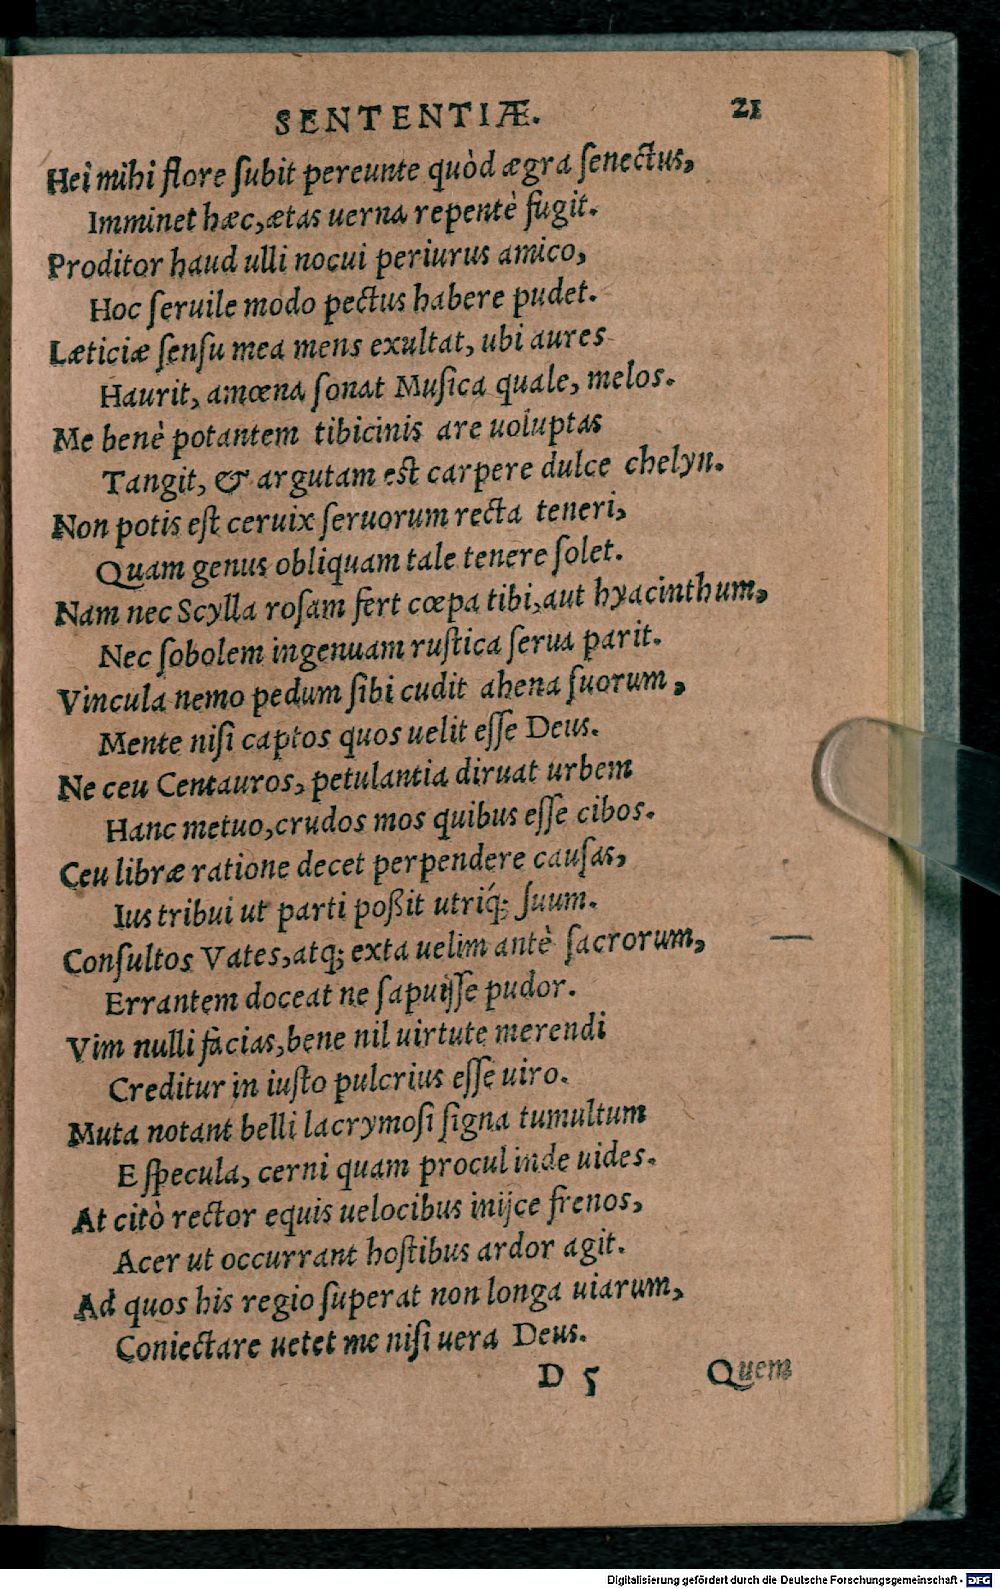 SENTENTIÆ. 21
Hei mihi flore ſubit pereunte quòd ægra ſenectus,
Imminet hæc, ætas uerna repentè fugit.
Proditor haud ulli nocui periurus amico,
Hoc ſeruile modo pectus habere pudet.
Læticiæ ſenſu mea mens exultat, ubi aures
Haurit, amœna ſonat Muſica quale, melos.
Me benè potantem tibicinis are uoluptas
Tangit, & argutam est carpere dulce chelyn.
Non potis est ceruix ſeruorum recta teneri,
Quam genus obliquam tale tenere ſolet.
Nam nec Scylla roſam fert cœpa tibi, aut hyacinthum,
Nec ſobolem ingenuam ruſtica ſerua parit.
Vincula nemo pedum ſibi cudit ahena ſuorum,
Mente niſi captos quos uelit eſſe Deus.
Ne ceu Centauros, petulantia diruat urbem
Hanc metuo, crudos mos quibus eſſe cibos.
Ceu libræ ratione decet perpendere cauſas,
Ius tribui ut parti poßit utriq́; ſuum.
Conſultos Vates, atq; exta uelim antè ſacrorum,
Errantem doceat ne ſapuiſſe pudor.
Vim nulli facias, bene nil uirtute merendi
Creditur in iuſto pulcrius eſſe uiro.
Muta notant belli lacrymoſi ſigna tumultum
E ſpecula, cerni quam procul inde uides.
At citò rector equis uelocibus inijce frenos,
Acer ut occurrant hoſtibus ardor agit.
Ad quos his regio ſuperat non longa uiarum,
Coniectare uetet me niſi uera Deus.
D 5 Quem
Digitalisierung gefördert durch die Deutsche Forschungsgemeinschaft - DFG